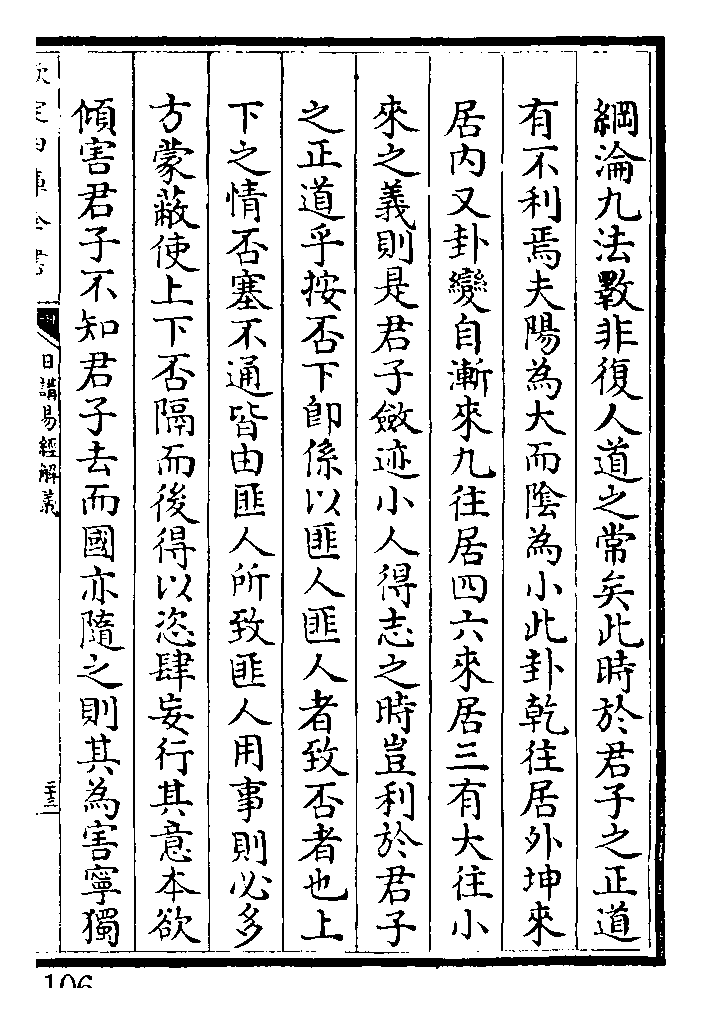 綱淪九法斁非復人道之常矣此時於君子之正道
有不利焉夫陽為大而陰為小此卦乾往居外坤來
居内又卦變自漸來九往居四六來居三有大往小
來之義則是君子斂迹小人得志之時豈利於君子
之正道乎按否下即係以匪人匪人者致否者也上
下之情否塞不通皆由匪人所致匪人用事則必多
方蒙蔽使上下否隔而後得以恣肆妄行其意本欲
傾害君子不知君子去而國亦隨之則其為害寧獨
欽定四庫全書
日講易經解義
106